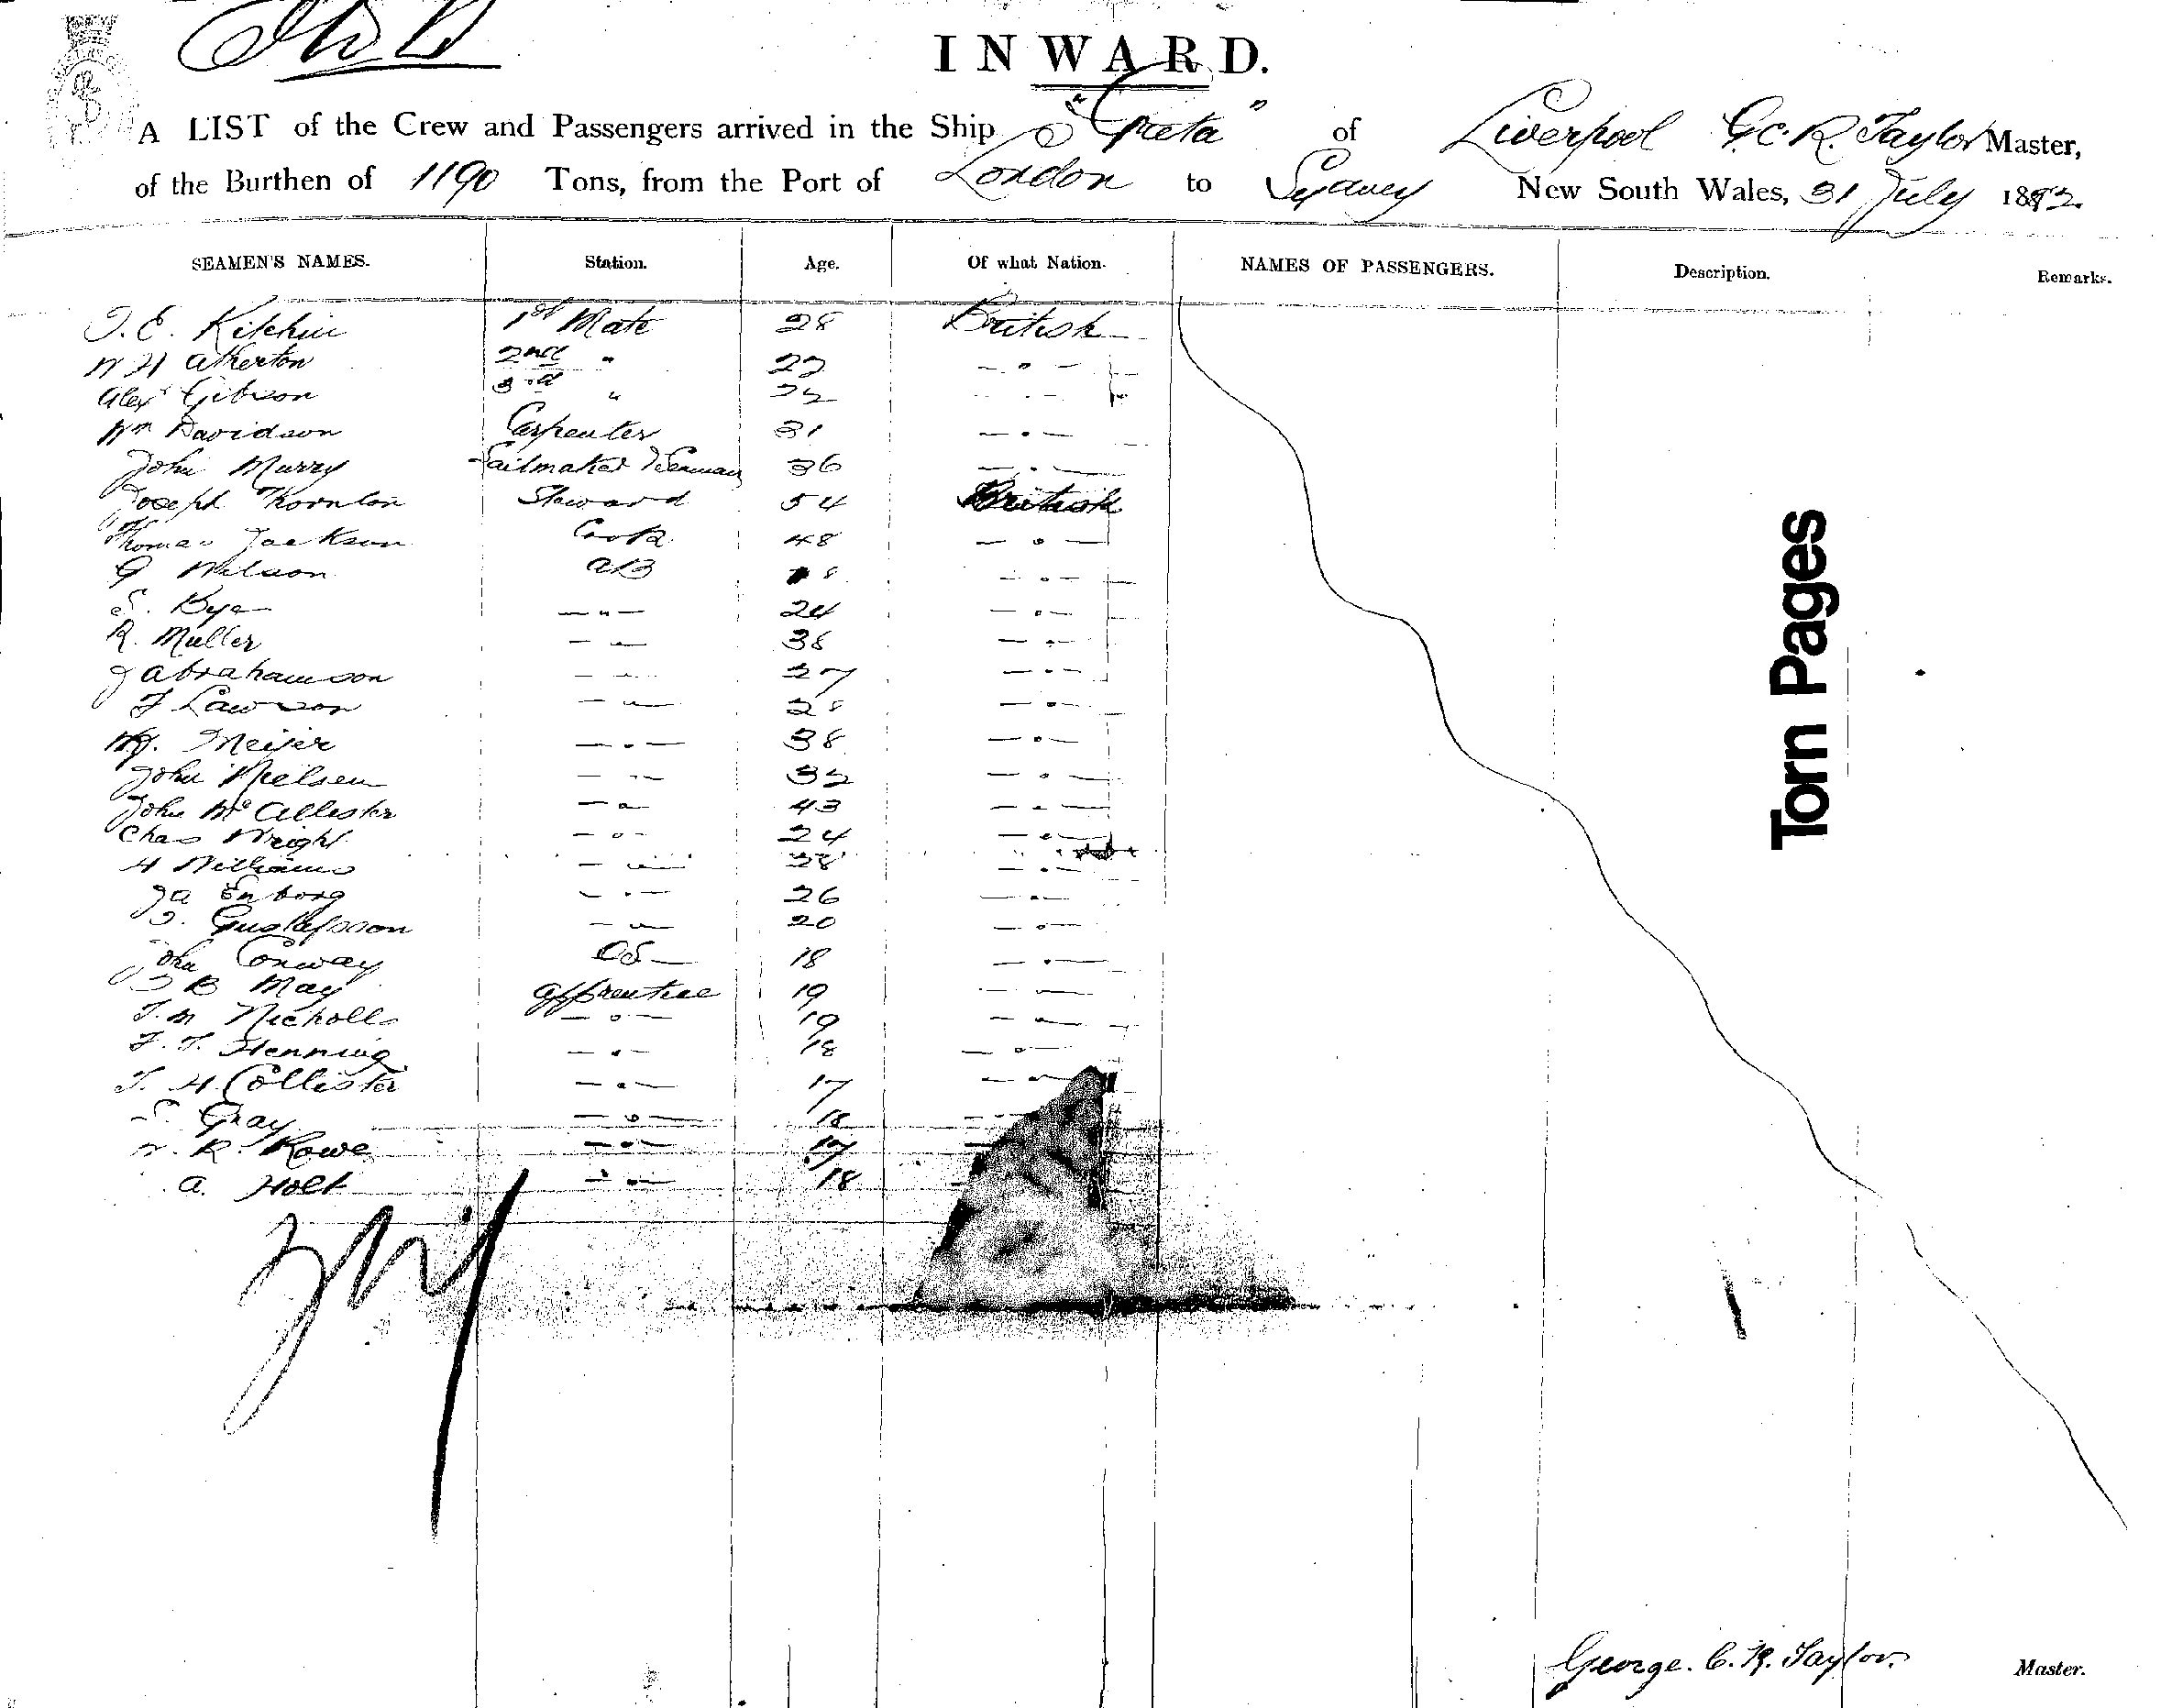 INWARD.
A LIST of the Crew and Passengers arrived in the Ship "Greta" of Liverpool G.C.R. Taylor Master,
of the Burthen of 1190 Tons, from the Port of London to Sydney New South Wales, 31 July 1892.
SEAMEN'S NAMES. Station. Age. Of what Nation. NAMES OF PASSENGERS. Description. Remarks.
J. E. Kitchin 1st Mate 28 British
W H Atherton 2nd " 22 - " -
Alexr Gibson 3rd " 22 - " -
Wm Davidson Carpenter 31 - " -
John Murry Sailmaker & Seaman 36 - " -
Joseph Thornton Steward 54 British
Thomas Jackson Cook 48 - " -
G Wilson AB - " -
S. Bye - " - 24 - " -
R. Muller - " - 38 - " -
J Abrahamson - " - 27 - " -
F Lawson - " - 28 - " -
Meijer - " - 38 - " -
John Nielsen - " - 32 - " -
John McAllester - " - 43 - " -
Chas Wright - " - 24 - " -
H Williams - " - 38 - " -
J A Enborg - " - 26 - " -
Gustafsson - " - 20 - " -
John Conway OS 18 - " -
B May Apprentice 19 - " -
Nicholls - " - 19 - " -
F. T. Henning - " - 18 - " -
T. H. Collister - " - 17 - " -
S. Gray - " - 18
W. R. Rowe - " - 17
A. Holt - " - 18
Torn Pages
George. C. R. Taylor. Master.